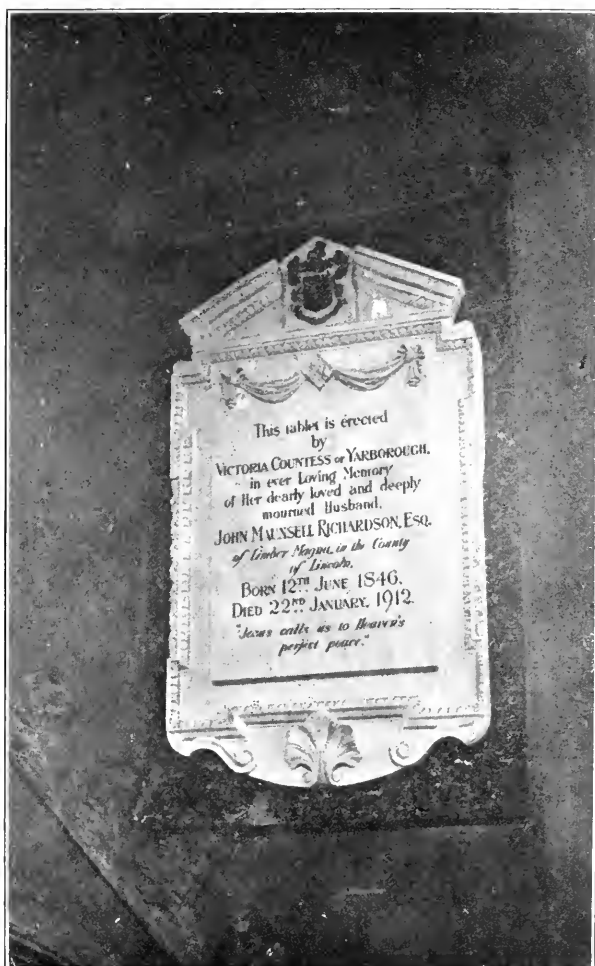 This tablet is erected
by
VICTORIA COUNTESS OF YARBOROUGH,
in ever Loving Memory
of Her dearly loved and deeply
mourned Husband,
JOHN MAUNSELL RICHARDSON, ESQ.
of Limber Magna, in the County
of Lincoln,
BORN 12TH JUNE 1846,
DIED 22ND JANUARY, 1912.
"Jesus calls us to Heaven's
perfect peace."